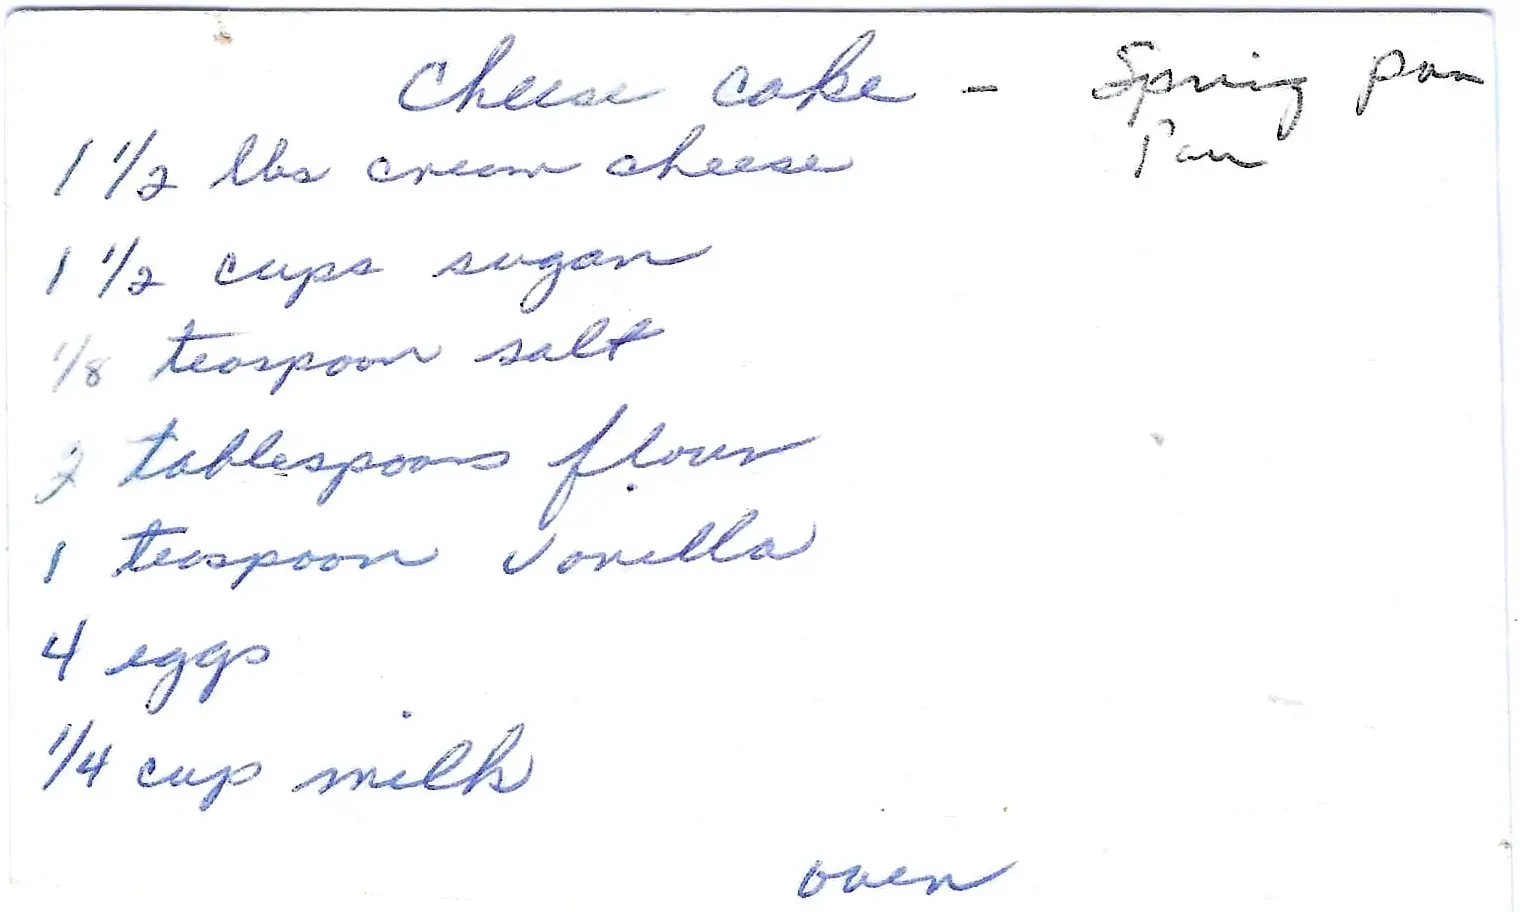 Cheese cake - Spring Pan
Pan
1 1/2 lbs cream cheese
1 1/2 cups sugar
1/8 teaspoon salt
2 tablespoons flour
1 teaspoon vanilla
4 eggs
1/4 cup milk
over